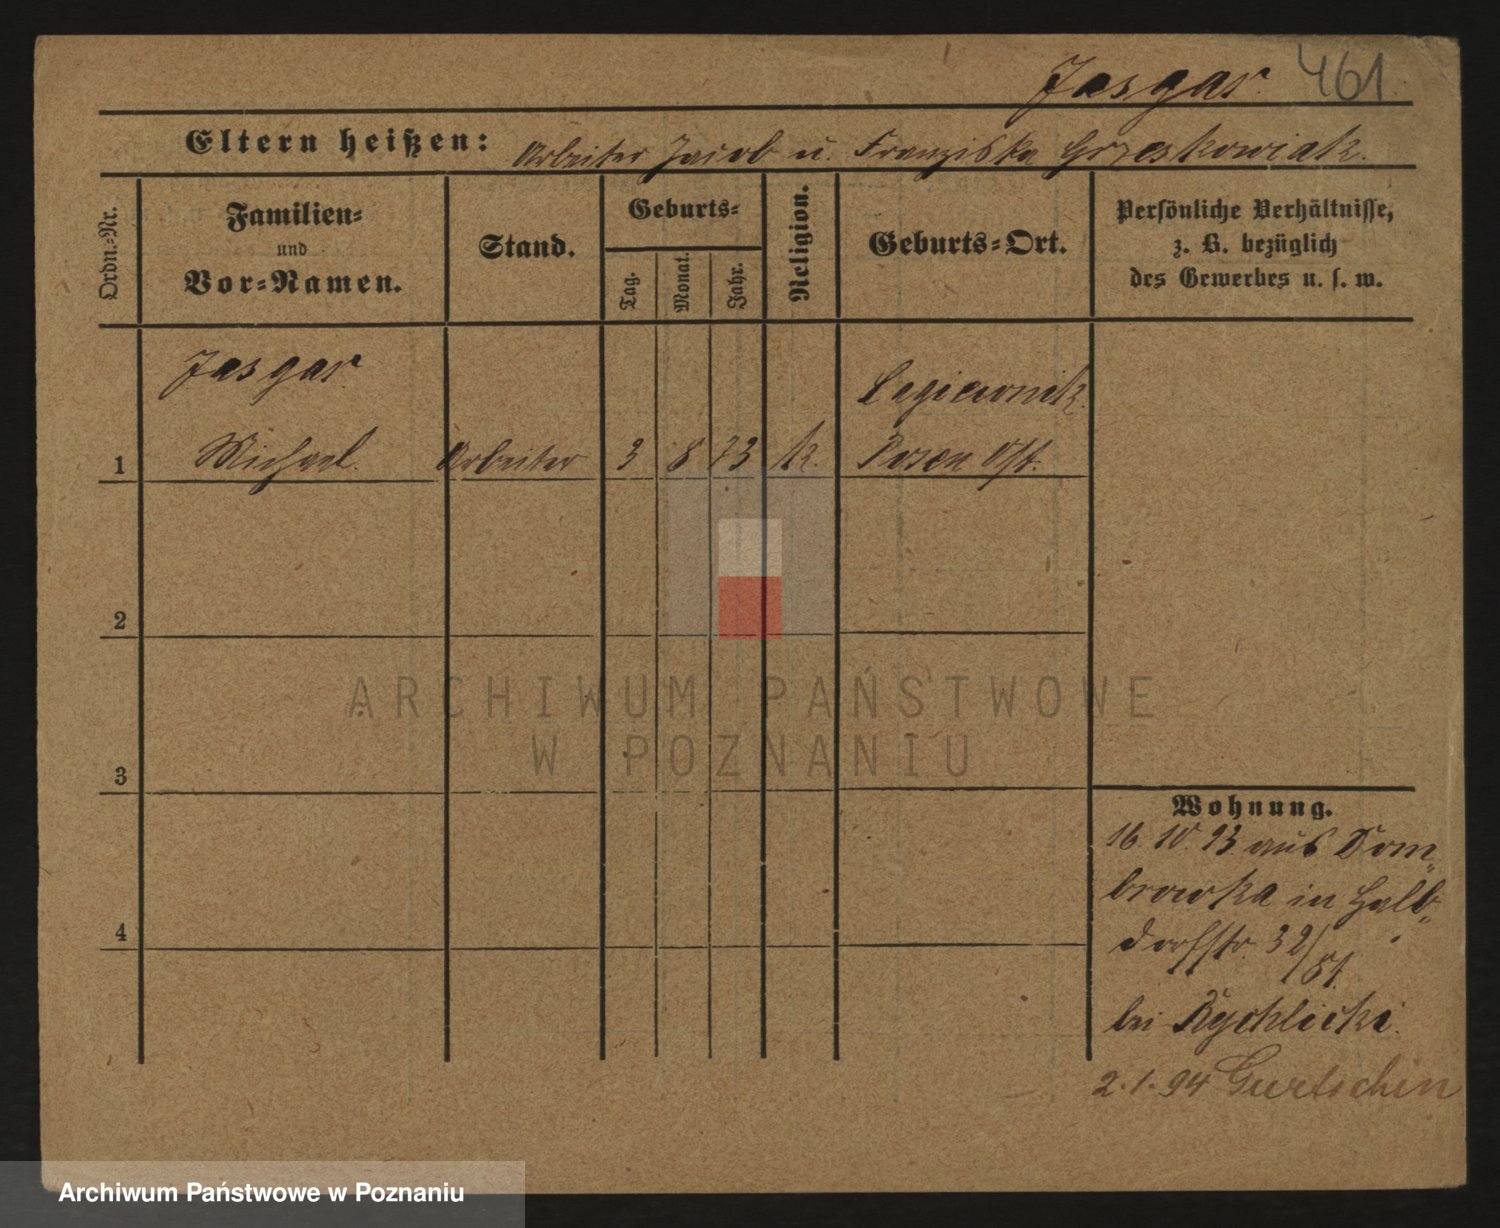 Jasgar 461.
Eltern heißen: Arbeiter Jacob u. Franziska Grzeskowiak.
Ordn.-Nr.
Familien-
und
Vor-Namen.
Stand.
Geburts-
Tag.
Monat.
Jahr.
Religion.
Geburts-Ort.
Persönliche Verhältnisse,
z. B. bezüglich
des Gewerbes u. s. w.
Jasgar
Legiewnik.
1 Michael. Arbeiter 3 8 73 k. Posen Ost.
2
3
4
Wohnung.
16. 10. 93. aus Dom-
browka in Halb-
dorfstr. 32/
51.
bei Rychlicki.
2.1.94 Gurtschin
ARCHIWUM PAŃSTWOWE
W POZNANIU
Archiwum Państwowe w Poznaniu